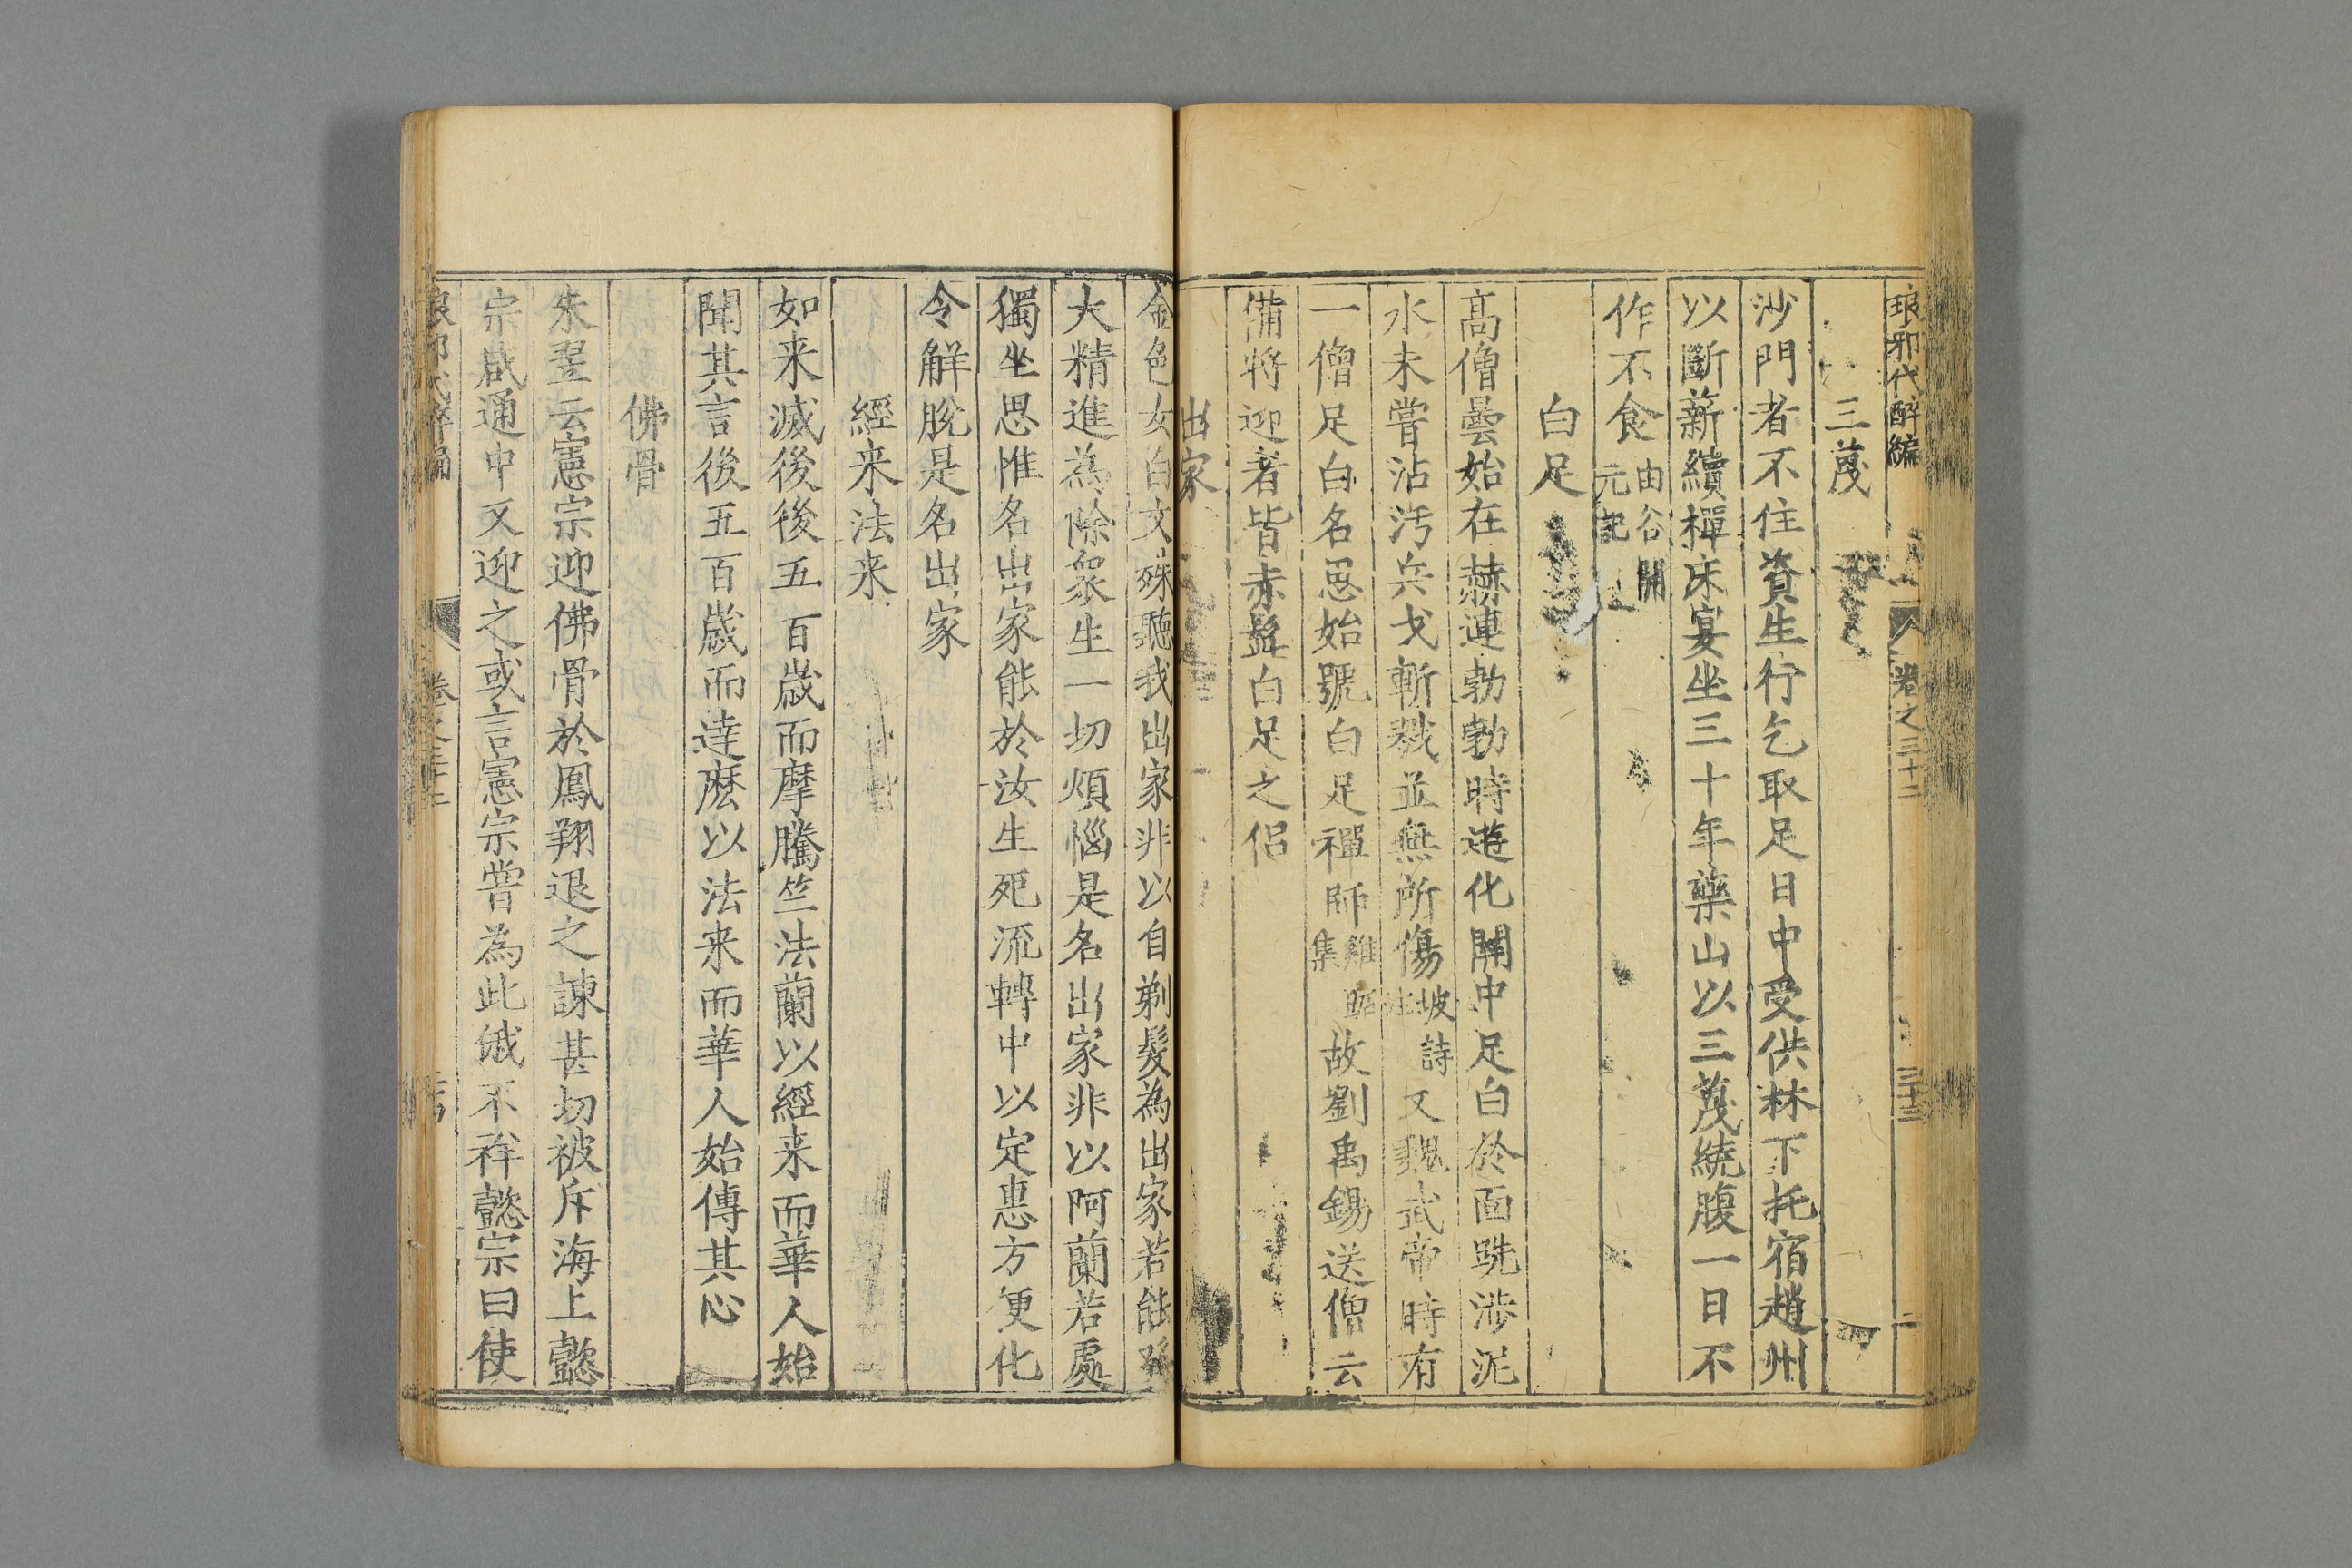 琅邪代醉編 卷之三十二
三蔑
沙門者不住資生行乞取足日中受供林下托宿趙州
以斷薪續禪床宴坐三十年藥山以三蔑繞腹一日不
作不食由谷開元記
白足
高僧曇始在赫連勃勃時遊化關中足白於面跣涉泥
水未嘗沾污兵戈斬戮並無所傷坡詩注又魏武帝時有
一僧足白名惠始號白足禪師雞跖集故劉禹錫送僧云
備將迎者皆赤髭白足之侶
出家
金色女白文殊聽我出家非以自剃髮為出家若能發
大精進為除衆生一切煩惱是名出家非以阿蘭若處
獨坐思惟名出家能於汝生死流轉中以定惠方便化
令解脫是名出家
經来法来
如来滅後後五百歲而摩騰竺法蘭以經来而華人始
聞其言後五百歲而達麽以法来而華人始傳其心
佛骨
朱翌云憲宗迎佛骨於鳳翔退之諫甚切被斥海上懿
宗咸通中又迎之或言憲宗嘗為此俄不祥懿宗曰使